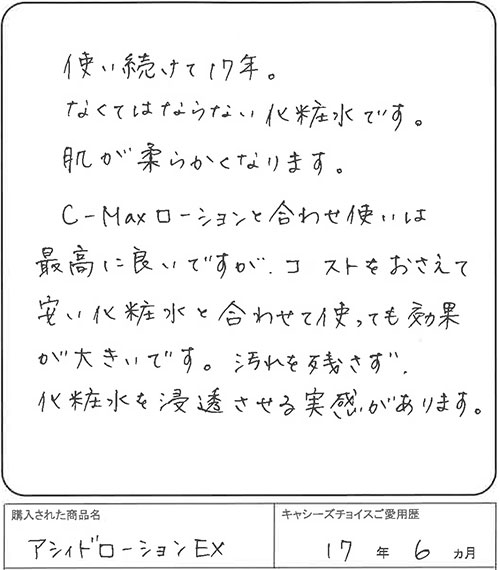 使い続けて17年。
なくてはならない化粧水です。
肌が柔らかくなります。
C-Maxローションと合わせ使いは
最高に良いですが、コストをおさえて
安い化粧水と合わせて使っても効果
が大きいです。汚れを残さず、
化粧水を浸透させる実感があります。
購入された商品名
キャシーズチョイスご愛用歴
アシィドローションEX
17 年 6 ヵ月